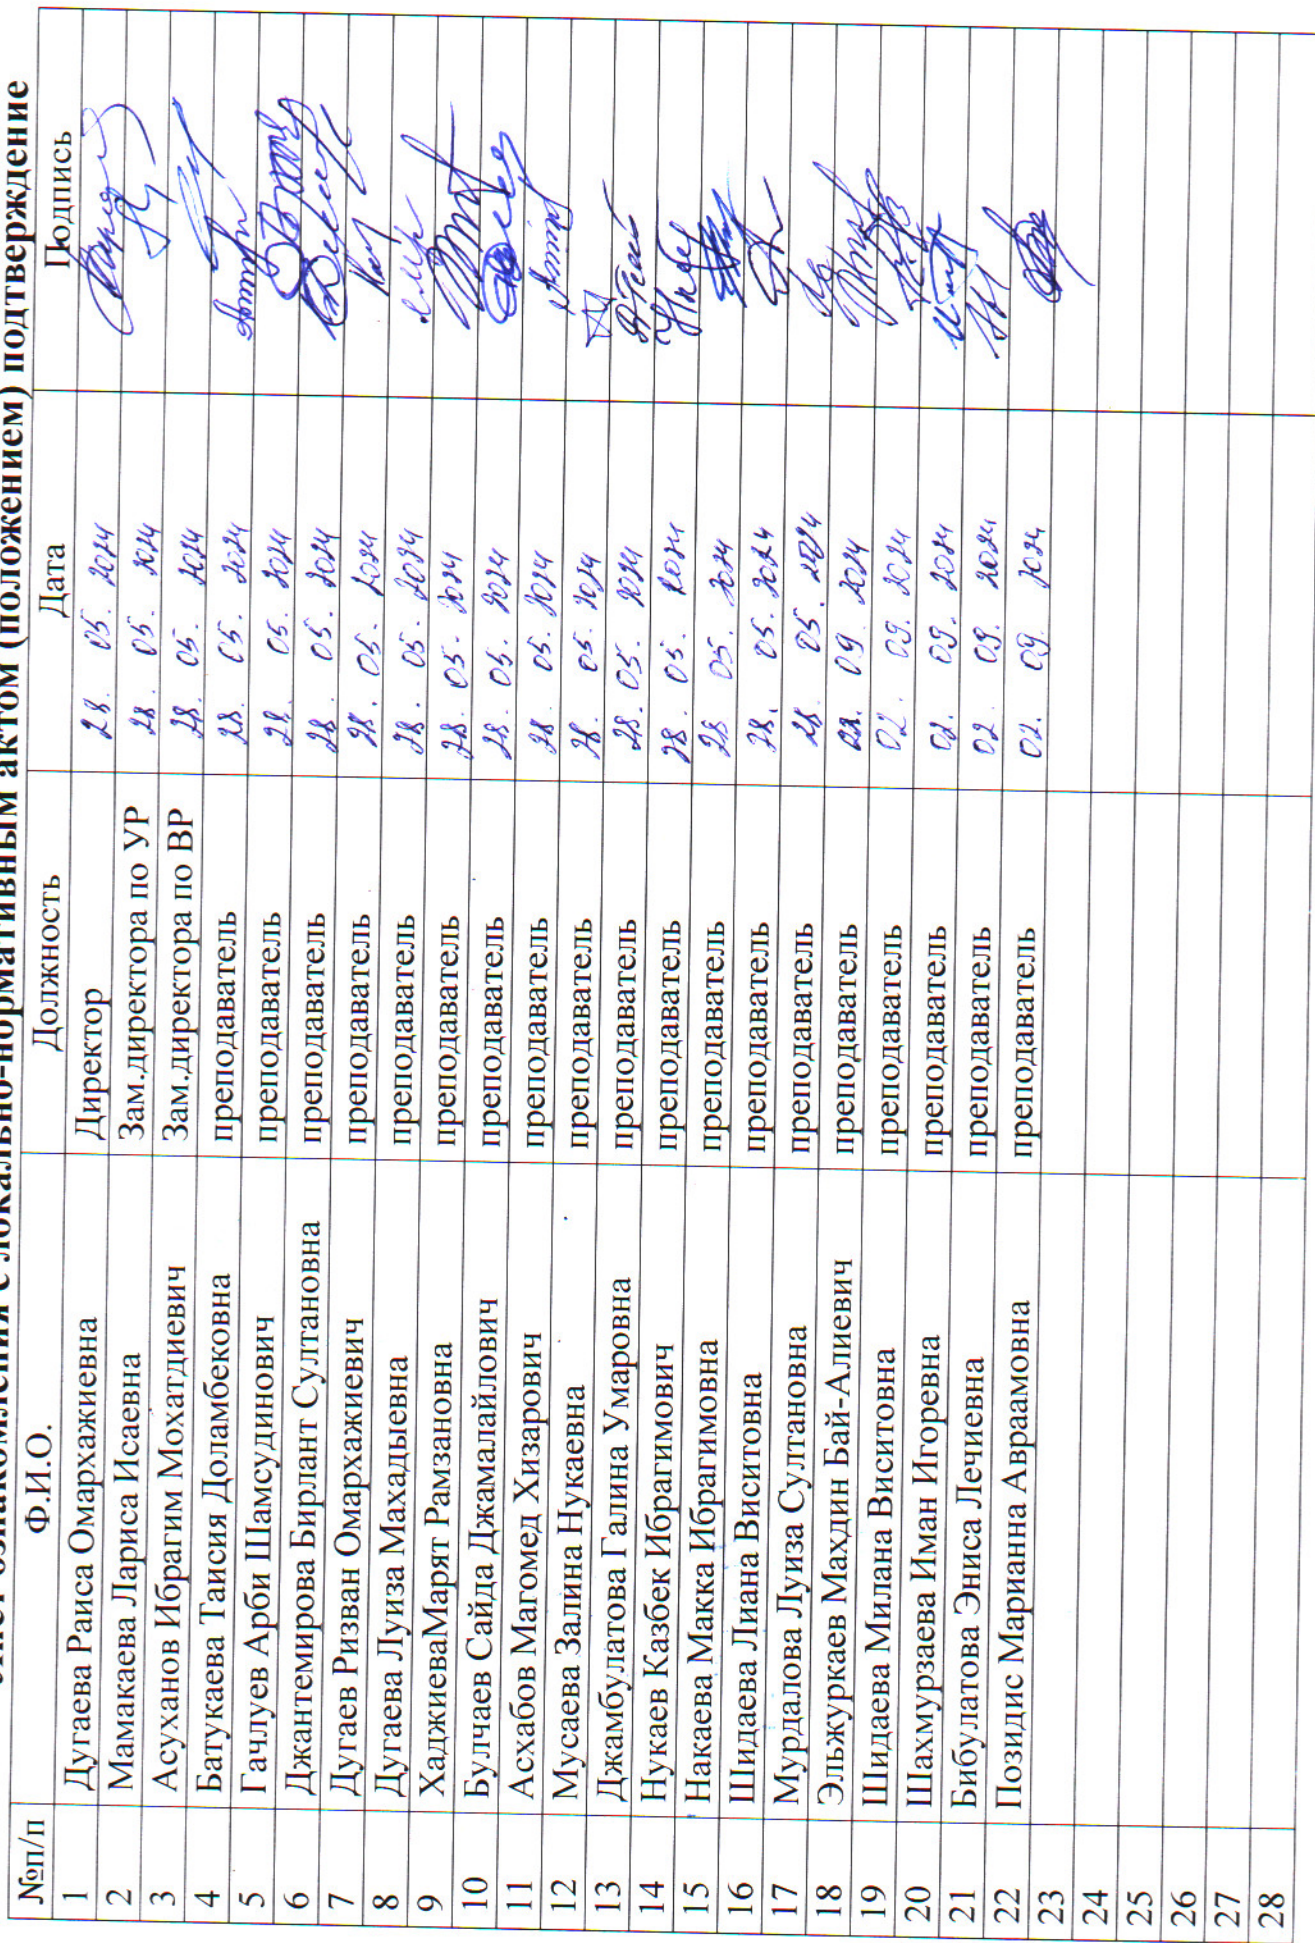 ознакомления с локально-нормативным актом (положением) подтверждение
№п/п Ф.И.О. Должность Дата Подпись
1 Дугаева Раиса Омархажиевна Директор 28. 05. 2024
2 Мамакаева Лариса Исаевна Зам.директора по УР 28. 05. 2024
3 Асуханов Ибрагим Мохатдиевич Зам.директора по ВР 28. 05. 2024
4 Батукаева Таисия Доламбековна преподаватель 28. 05. 2024
5 Гачлуев Арби Шамсудинович преподаватель 28. 05. 2024
6 Джантемирова Бирлант Султановна преподаватель 28. 05. 2024
7 Дугаев Ризван Омархажиевич преподаватель 28. 05. 2024
8 Дугаева Луиза Махадыевна преподаватель 28. 05. 2024
9 ХаджиеваМарят Рамзановна преподаватель 28. 05. 2024
10 Булчаев Сайда Джамалайлович преподаватель 28. 05. 2024
11 Асхабов Магомед Хизарович преподаватель 28. 05. 2024
12 Мусаева Залина Нукаевна преподаватель 28. 05. 2024
13 Джамбулатова Галина Умаровна преподаватель 28. 05. 2024
14 Нукаев Казбек Ибрагимович преподаватель 28. 05. 2024
15 Накаева Макка Ибрагимовна преподаватель 28 05. 2024
16 Шидаева Лиана Виситовна преподаватель 28. 05. 2024
17 Мурдалова Луиза Султановна преподаватель 28. 05. 2024
18 Эльжуркаев Махдин Бай-Алиевич преподаватель 02. 09. 2024
19 Шидаева Милана Виситовна преподаватель 02. 09. 2024
20 Шахмурзаева Иман Игоревна преподаватель 02. 09. 2024
21 Бибулатова Эниса Лечиевна преподаватель 02 09. 2024
22 Позидис Марианна Авраамовна преподаватель 02. 09. 2024
23
24
25
26
27
28